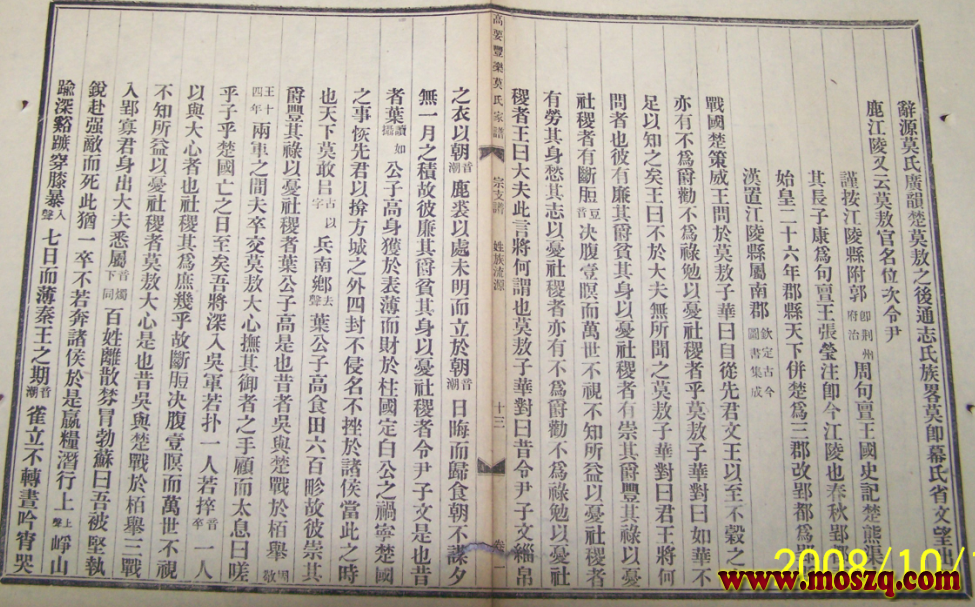 辭源莫氏廣韻楚莫敖之後通志氏族畧莫卽幕氏省文望出
鹿江陵又云莫敖官名位次令尹
謹按江陵縣附郭卽荆州府治周句亶王國史記楚熊渠
其長子康爲句亶王張瑩注卽今江陵也春秋郢
始皇二十六年郡縣天下併楚爲三郡改郢都爲
漢置江陵縣屬南郡欽定古今圖書集成
戰國楚策威王問於莫敖子華曰自從先君文王以至不穀之
亦有不爲爵勸不爲祿勉以憂社稷者乎莫敖子華對曰如華不
足以知之矣王曰不於大夫無所聞之莫敖子華對曰君王將何
問者也彼有廉其爵貧其身以憂社稷者有崇其爵豐其祿以憂
社稷者有斷脰豆音決腹壹瞑而萬世不視不知所益以憂社稷者
有勞其身愁其志以憂社稷者亦有不爲爵勸不爲祿勉以憂社
稷者王曰大夫此言將何謂也莫敖子華對曰昔令尹子文緇帛
高要豐樂莫氏家譜
宗支譜
姓族流源
十三
卷一
之衣以朝音潮鹿裘以處未明而立於朝音潮日晦而歸食朝不謀夕
無一月之積故彼廉其爵貧其身以憂社稷者令尹子文是也昔
者葉讀如攝公子高身獲於表薄而財於柱國定白公之禍寧楚國
之事恢先君以揜方城之外四封不侵名不挫於諸侯當此之時
也天下莫敢㠯古以字兵南鄉去聲葉公子高食田六百畛故彼崇其
爵豐其祿以憂社稷者葉公子高是也昔者吳與楚戰於栢舉周敬
王十四年兩軍之間夫卒交莫敖大心撫其御者之手顧而太息曰嗟
乎子乎楚國亡之日至矣吾將深入吳軍若扑一人若捽音卒一人
以與大心者也社稷其爲庶幾乎故斷脰決腹壹瞑而萬世不視
不知所益以憂社稷者莫敖大心是也昔吳與楚戰於栢舉三戰
入郢寡君身出大夫悉屬音燭下同百姓離散棼冒勃蘇曰吾被堅執
銳赴强敵而死此猶一卒不若奔諸侯於是嬴糧潛行上上聲崢山
踰深谿蹠穿膝暴入聲七日而薄秦王之期音潮雀立不轉晝吟宵哭
2008/10/
www.moszq.com